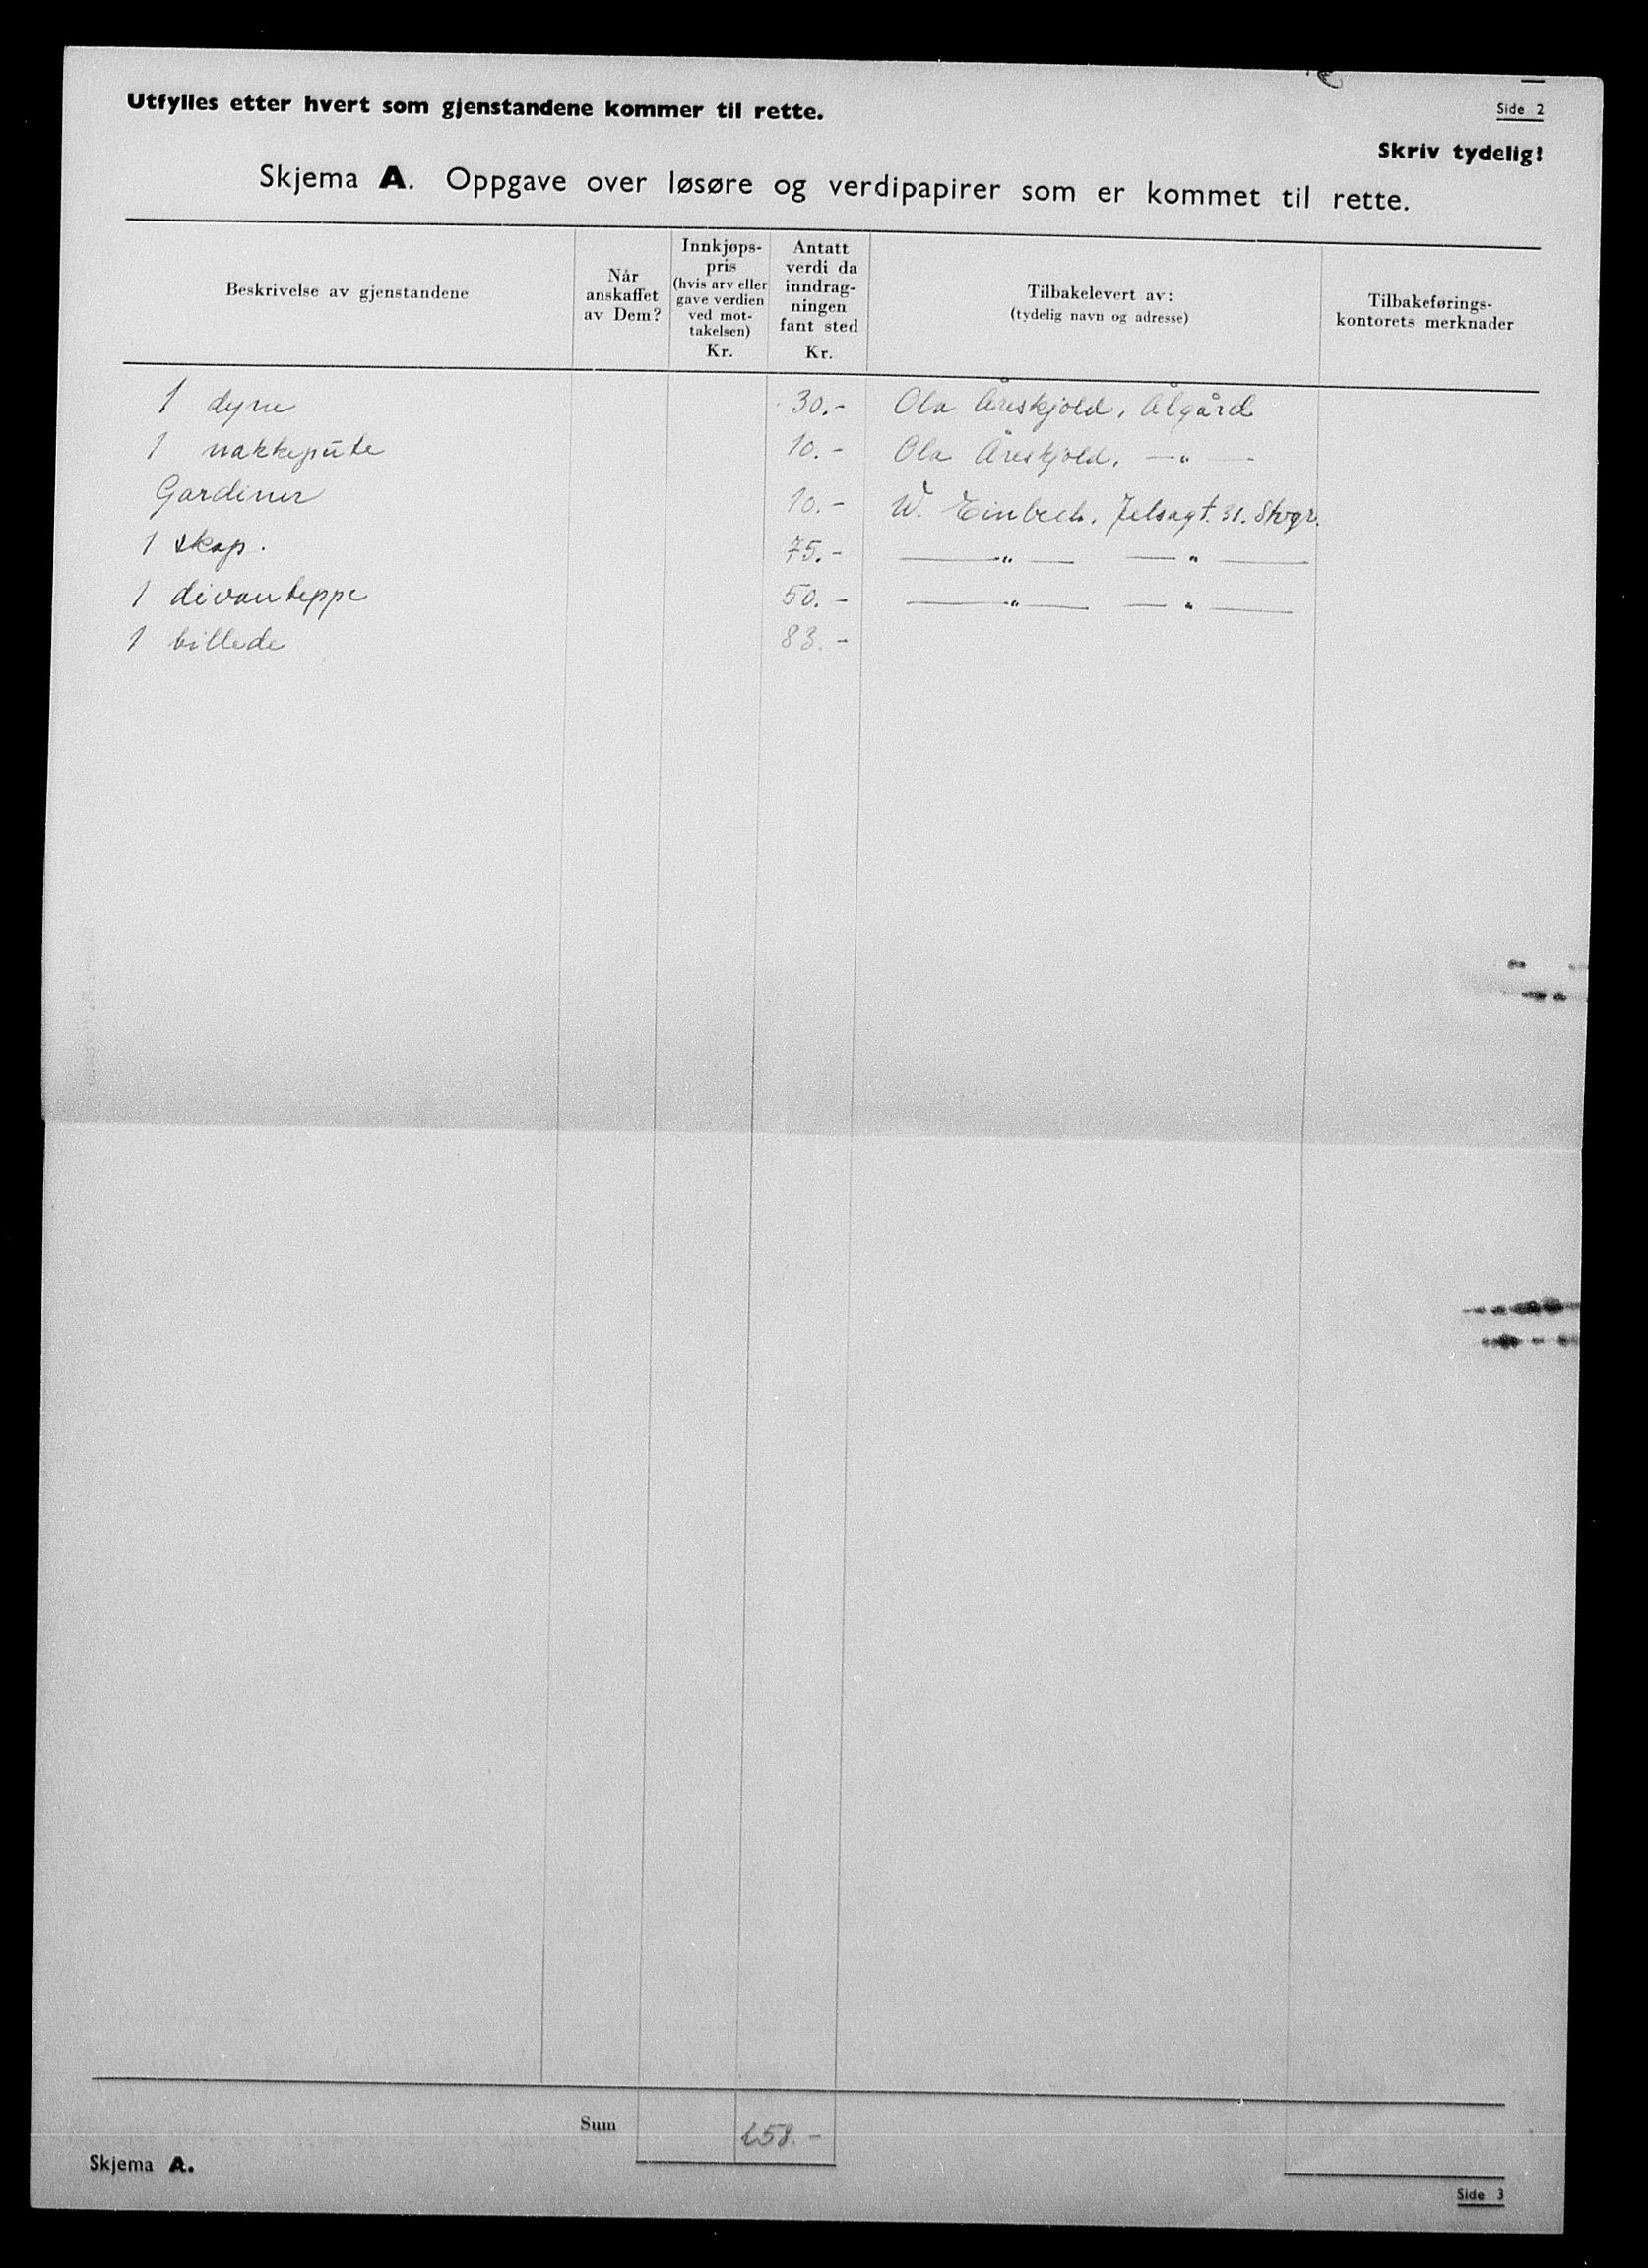 Side 2
Utfylles etter hvert som gjenstandene kommer til rette.
Skriv tydelig!
Skjema A. Oppgave over løsøre og verdipapirer som er kommet til rette.
Beskrivelse av gjenstandene
Når
anskaffet
av Dem?
Innkjøps-
pris
(hvis arv eller
gave verdien
ved mot-
takelsen)
Kr.
Antatt
verdi da
inndrag-
ningen
fant sted
Kr.
Tilbakelevert av:
(tydelig navn og adresse)
Tilbakeførings-
kontorets merknader
1 dyne 30.- Ola Åreskjold, Ålgård
1 nakkepute 10.- Ola Åreskjold, —"—
Gardiner 10.- W. Einbech. Jelsagt. 31. Stvgr.
1 skap. 75.- —"— —"—
1 divanteppe 50.- —"— —"—
1 billede 83.-
Sum 258.-
Skjema A.
Side 3